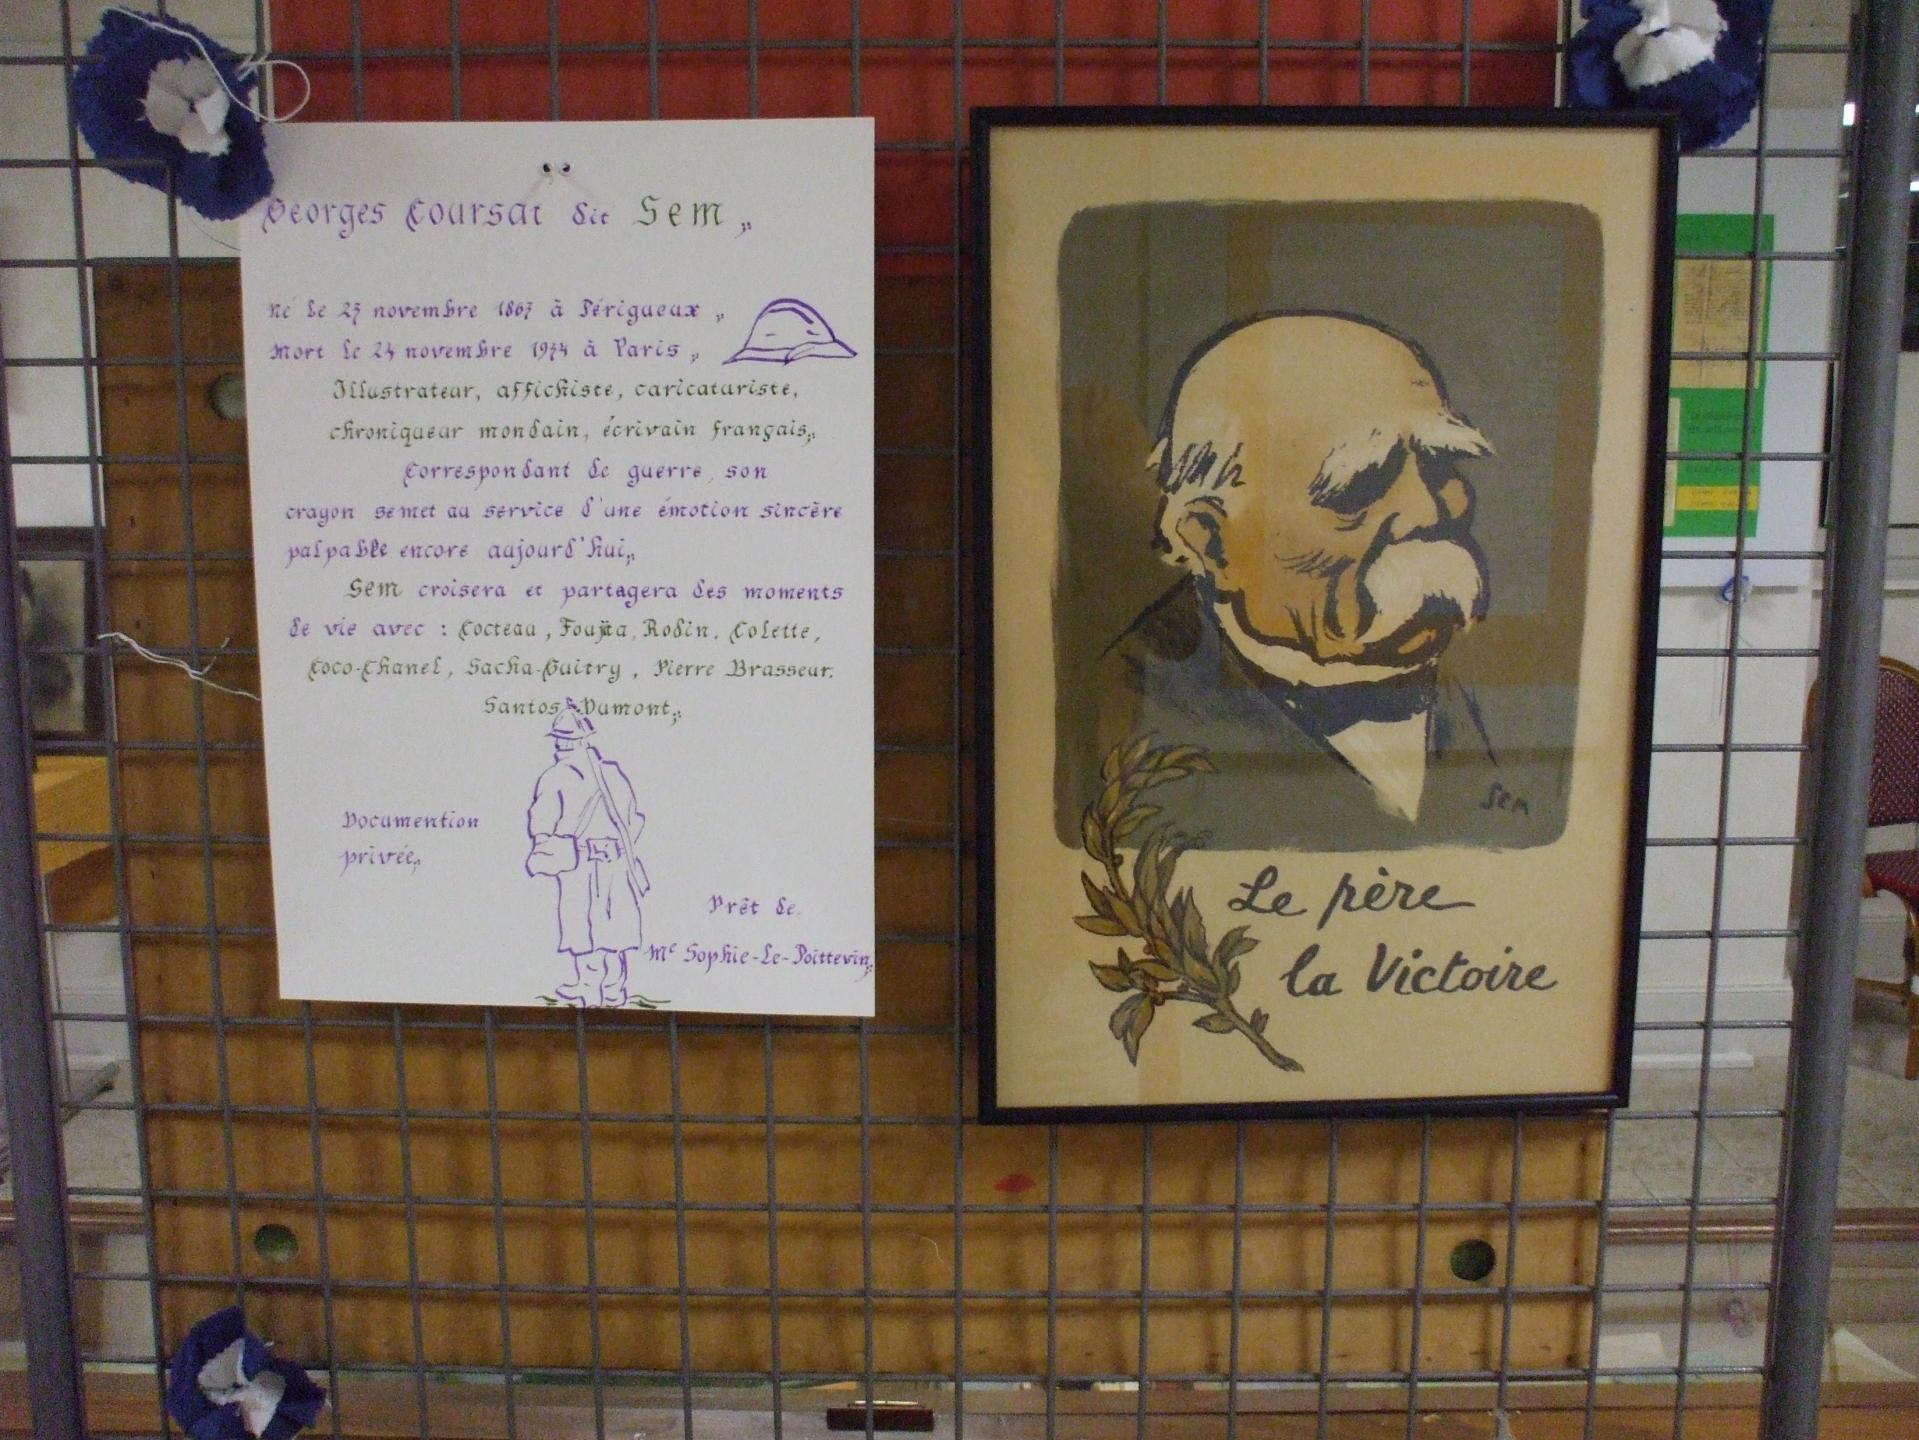 Georges Coursat dit Sem
né le 23 novembre 1863 à Périgueux
Mort le 24 novembre 1934 à Paris
Illustrateur, affichiste, caricaturiste,
chroniqueur mondain, écrivain français
Correspondant de guerre, son
crayon se met au service d'une émotion sincère
palpable encore aujourd'hui
Sem croisera et partagera des moments
de vie avec : Cocteau, Foujita, Rodin, Colette,
Coco-Chanel, Sacha-Guitry, Pierre Brasseur.
Santos Dumont
Documention
privée
Prêt de
Me Sophie-Le-Poittevin
Sem
Le père
la Victoire